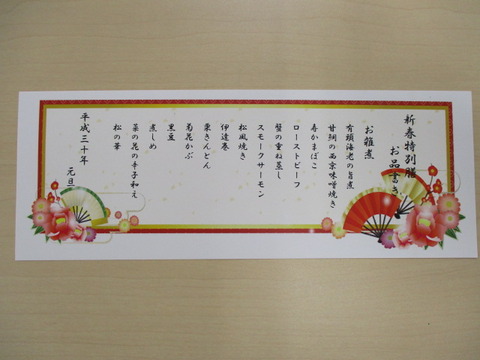 新春特別膳
お品書き
お雑煮
有頭海老の旨煮
甘鯛の西京味噌焼き
寿かまぼこ
ローストビーフ
蟹の重ね蒸し
スモークサーモン
松風焼き
伊達巻
栗きんとん
菊花かぶ
黒豆
煮しめ
菜の花の辛子和え
松の葉
平成三十年 元旦